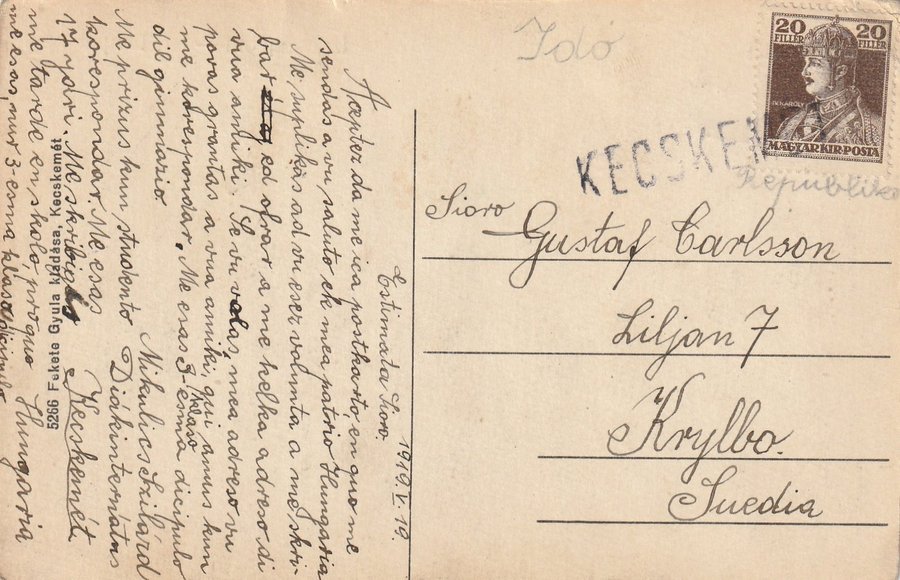 Ido
20 20
FILLÉR FILLÉR
IV. KÁROLY
MAGYAR KIR. POSTA
KECSKEM
Republiko
Sioro Gustaf Carlsson
Liljan 7
Krylbo.
Suedia
1919. V. 19.
Estimata Sioro.
Aceptez da me ica postkarto, en quo me
sendas a vu saluto ek mea patrio Hungaria
Me suplikas ad vu esez volunta a me skri-
bar ed ofrar a me kelka adreso di
vua amiki. Se vu volas, mea adreso vu
povas grantas a vua amiki, qui amus kun
me korespondar. Me esas 3-esma klaso dicipulo
dil gimnazio.
Me prizus kun studento
korespondar. Me esas
17 yari. Me
me tarde en skolo, pro quo Hungaria
me esas nur 3-esma klaso dicipulo
Mikulics Szilárd
Diákinternátus
Kecskemét
5266 Fekete Gyula kiadása, Kecskemét